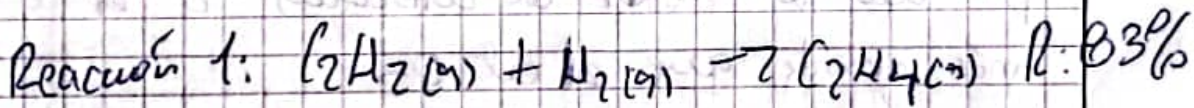 Reacción 1: C₂H₂(g) + H₂(g) → C₂H₄(g) R: 83%